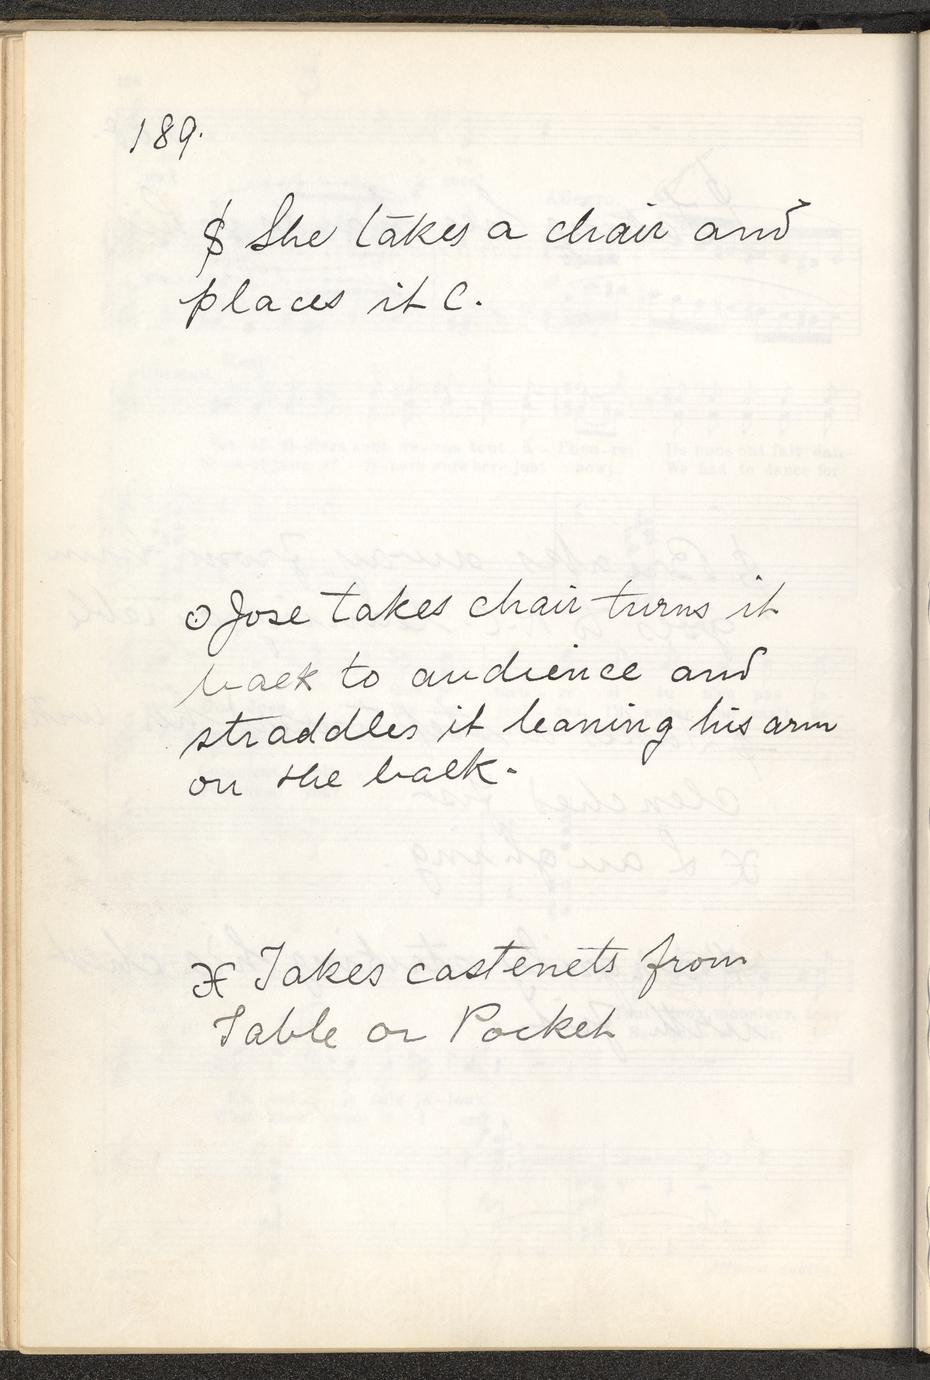 189.
$ She takes a chair and
places it C.
⊙ Jose takes chair turns it
back to audience and
straddles it leaning his arm
on the back.
Ӿ Takes castenets from
Table or Pocket